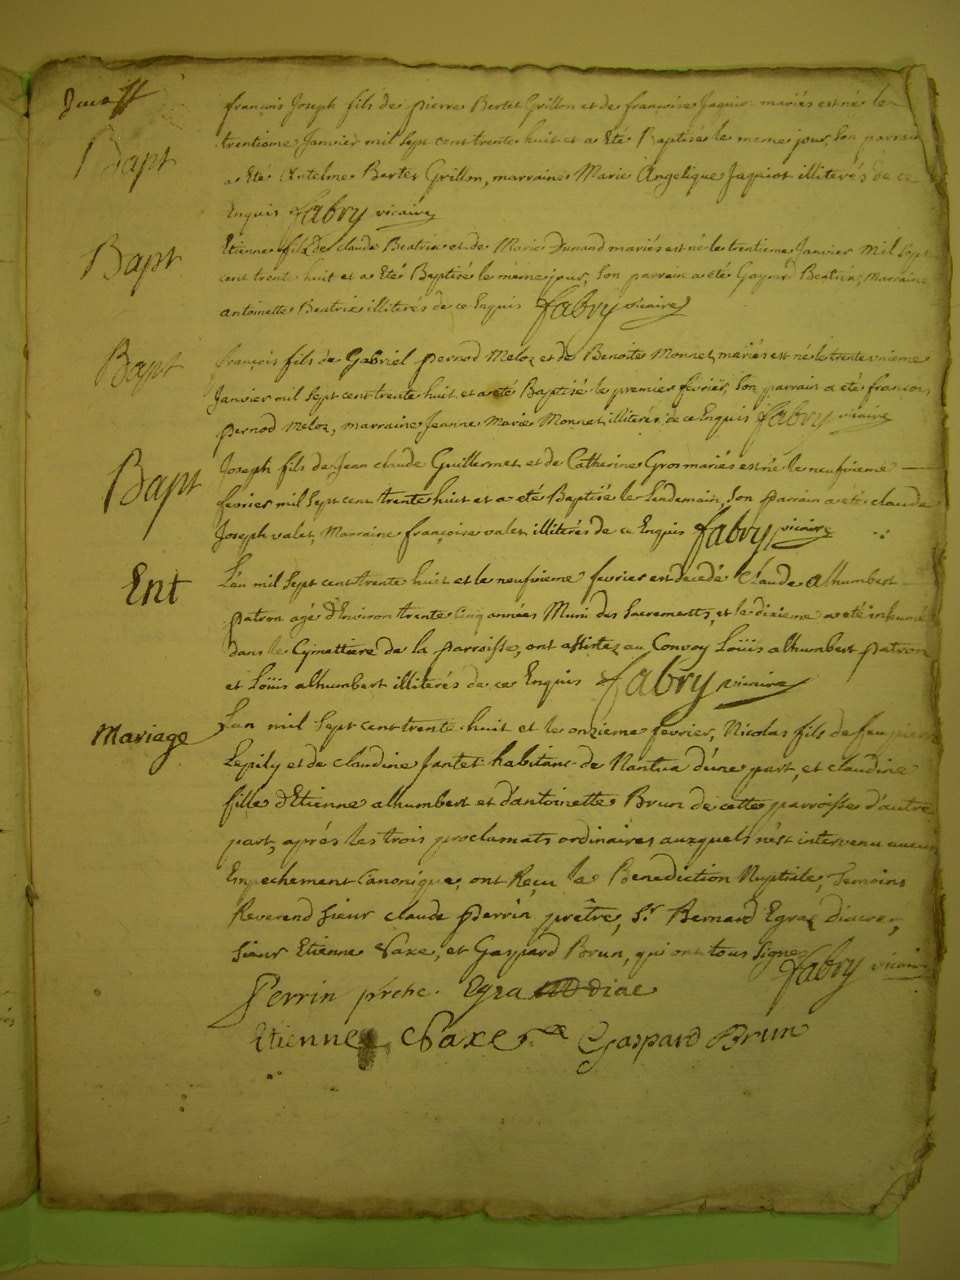 Bapt
françois Joseph fils de pierre Bertet Grillon et de françoise Jaquiot mariés est né le
trentieme Janvier mil sept cent trente huit et a Eté Baptisé le meme jour, Son parrain
a Eté Antelme Bertet Grillon, marraine Marie Angelique Jaquiot illiterés de ce
Enquis fabry vicaire
Bapt
Etienne fils de claude Beatrix et de Marie Dunand mariés est né le trentieme Janvier Mil sept
cent trente huit et a Eté Baptisé le meme jour, Son parrain a eté Gaspard Beatrix, Marraine
antoinette Beatrix illiterés de ce Enquis fabry vicaire
Bapt
françois fils de Gabriel pernod Meloz et de Benoite Monnet mariés est né le trente unieme
Janvier mil sept cent trente huit et a eté Baptisé le premier fevrier, Son parrain a eté françois
pernod Meloz, marraine Jeanne Marie Monnet illiterés de ce Enquis fabry vicaire
Bapt
Joseph fils de Jean claude Guillermet et de Catherine Gros mariés est né le neufvieme
fevrier mil sept cent trente huit et a eté Baptisé le Lendemain, Son parrain a eté claude
Joseph valet, Marraine françoise valet illiterés de ce Enquis fabry vicaire
Ent
L'an mil sept cent trente huit et le neufvieme fevrier est decedé Claude alhumbert
patron agé d'Environ trente cinq années Muni des Sacrements, et le dixieme a eté inhumé
dans le Cymettiere de la parroisse, ont assistez au Convoy Loüis alhumbert patron
et Loüis alhumbert illiterés de ce Enquis fabry vicaire
Mariage
L'an mil sept cent trente huit et le onzieme fevrier, Nicolas fils de feu pierre
Lepily et de claudine Jantet habitant de Nantua d'une part, et claudine
fille d'Etienne alhumbert et d'antoinette Brun de cette parroisse d'autre
part, aprés les trois proclamats ordinaires auxquels n'est intervenu aucun
Empechement Canonique, ont Reçu la Benediction Nuptiale, Temoins
Reverend sieur claude Perrin prêtre, Sr. Bernard Egraz diacre,
sieur Etienne Saxe, et Gaspard Brun, qui ont tous signez fabry vicaire
Perrin prêtre. Egra diac
Etienne Saxe Gaspard Brun